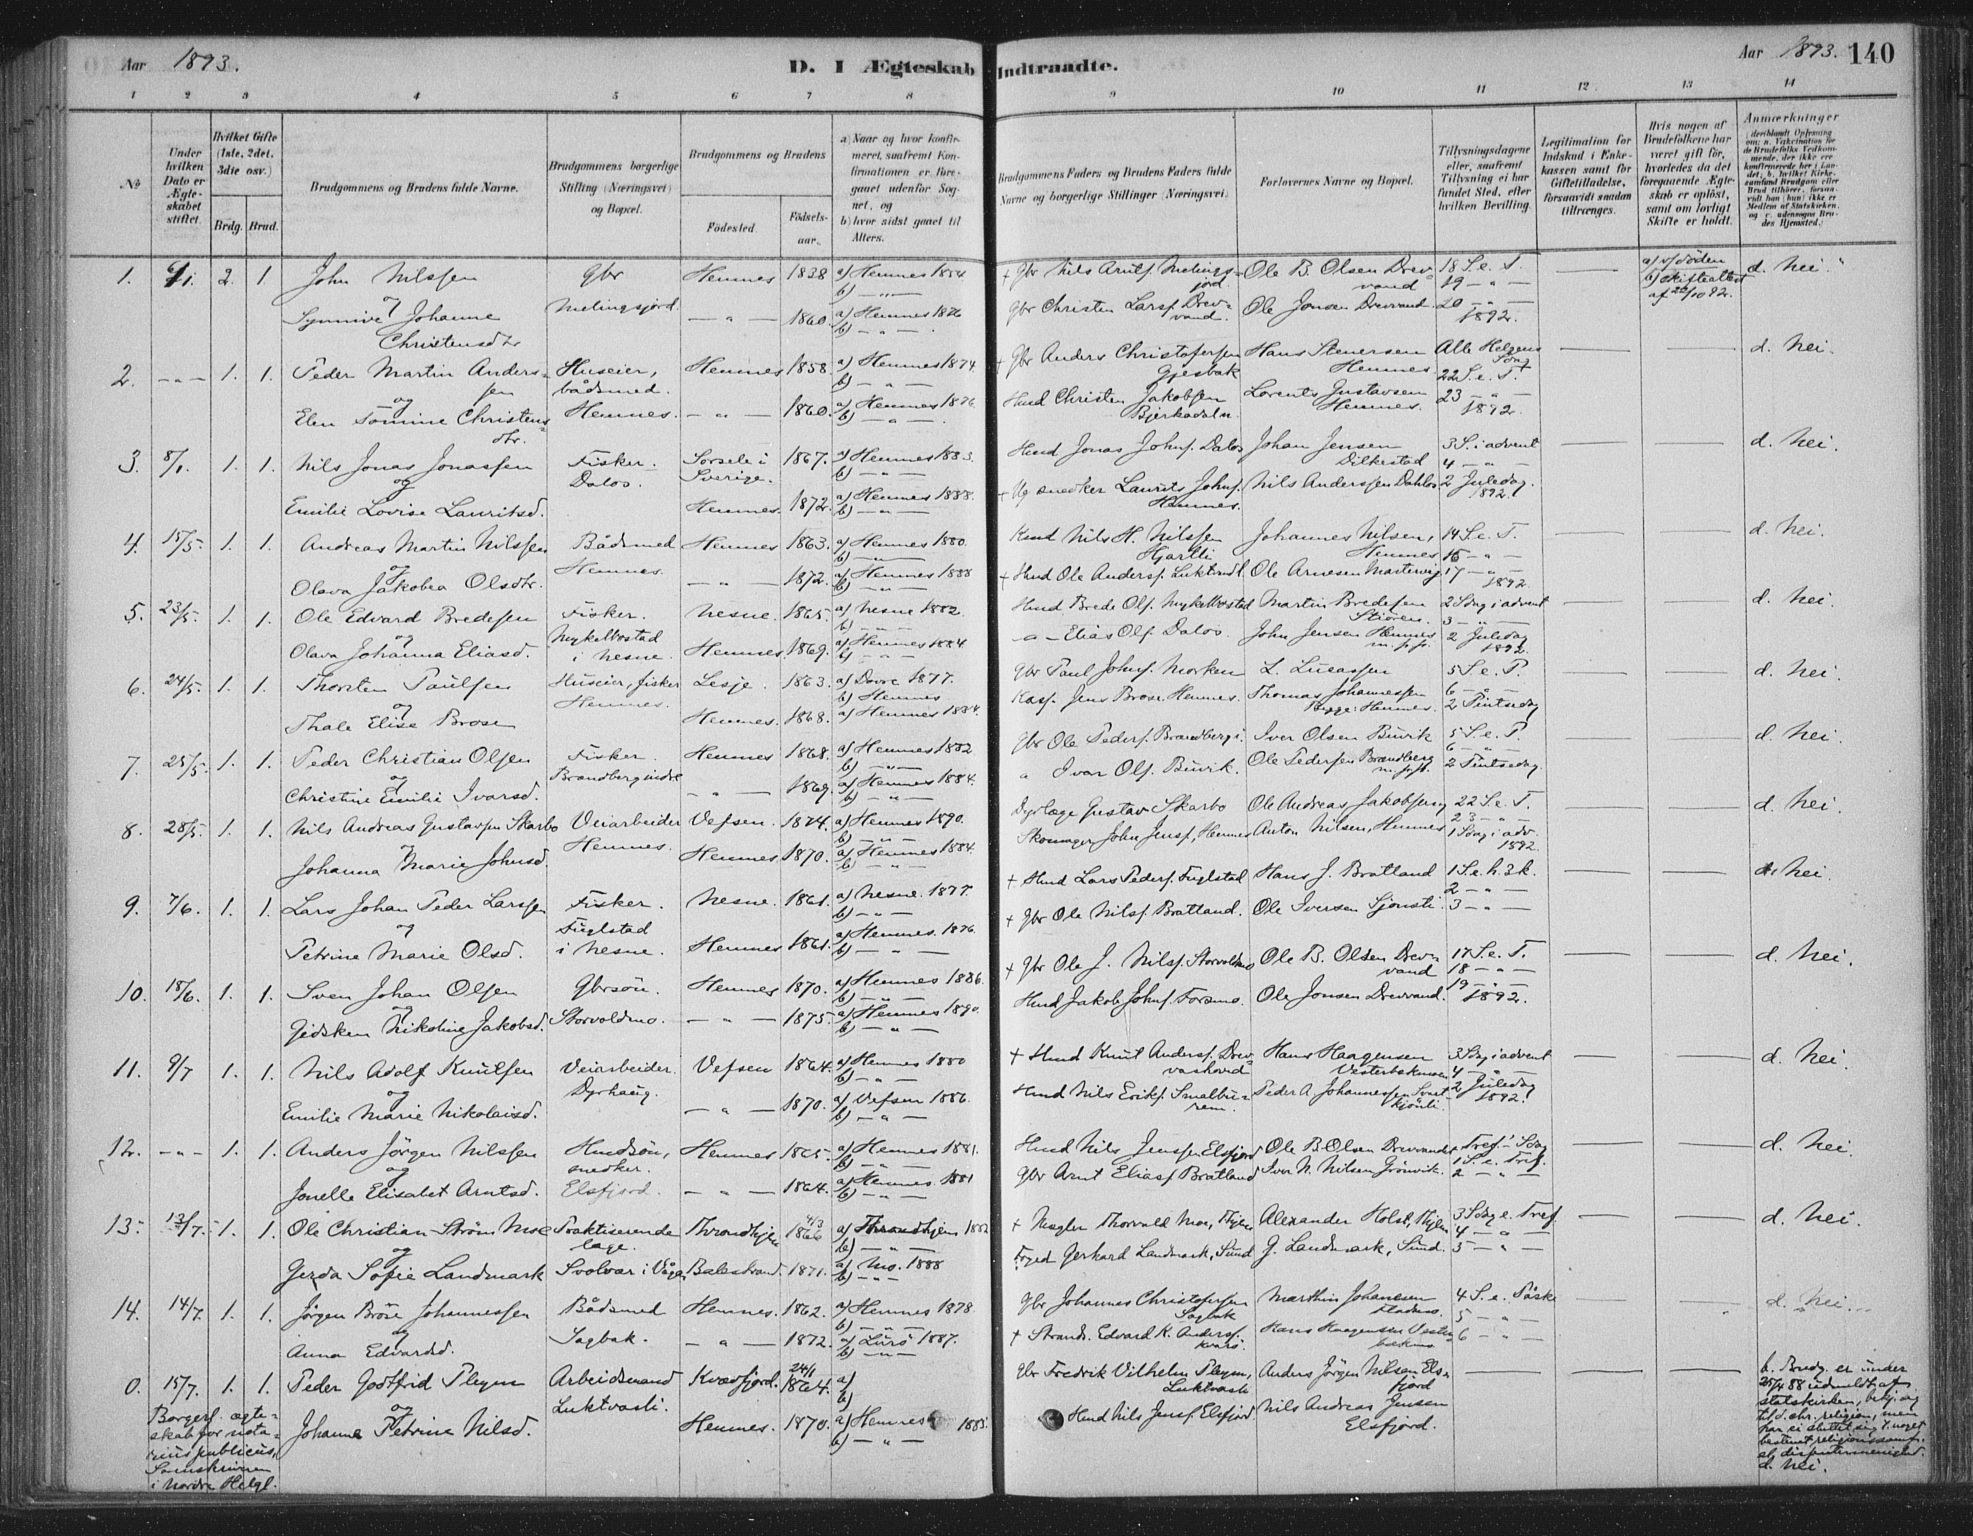 Aar 1893.
D. I Ægteskab Indtraadte.
Aar 1893. 140
1 2 3 4 5 6 7 8 9 10 11 12 13 14
No
Under hvilken Dato er Ægteskabet stiftet.
Hvilket Gifte (1ste, 2det, 3die osv.)
Brdg. Brud.
Brudgommens og Brudens fulde Navne.
Brudgommens borgerlige Stilling (Næringsvei) og Bopæl.
Brudgommens og Brudens
Fødested.
Fødselsaar.
a) Naar og hvor konfirmeret, saafremt Konfirmationen er foregaaet udenfor Sognet, og
b) hvor sidst gaaet til Alters.
Brudgommens Faders og Brudens Faders fulde Navne og borgerlige Stillinger (Næringsvei).
Forlovernes Navne og Bopæl.
Tillysningsdagene eller, saafremt Tillysning ei har fundet Sted, efter hvilken Bevilling.
Legitimation for Indskud i Enkekassen samt for Giftetilladelse, forsaavidt saadan tiltrænges.
Hvis nogen af Brudefolkene har været gift før, hvorledes da det foregaaende Ægteskab er opløst, samt om lovligt Skifte er holdt.
Anmærkninger
1. 6/1 2. 1. John Nilssen Gbr Hemnes 1838 a) Hemnes 1854 + Gbr Nils Arntf. Melingsfjord Ole B. Olsen Drevvand 18 S. e. T. a) v/ Døden d. Nei.
og Melingsfjord b) — " — 19 — " — b) Skifteattest af
Synnive Johanne Christensdtr — " — 1860. a) Hemnes 1876 Gbr Christen Larsf. Drevvand. Ole Jonsen Drevvand 20 — " — 1892.
2. — " — 1. 1. Peder Martin Anderssen Huseier, bådsmed. Hemnes 1858 a) Hemnes 1874. + Gbr Anders Christofersen Gjesbak Hans Stenersen Hemnes Alle Helgens Sdag d. Nei.
og Hemnes. 22 S. e. T.
Elen Tomine Christensdtr. — " — 1860. a) Hemnes 1876 Husd Christen Jakobsen Bjerkadaln. Lorents Gustavsen Hemnes. 23 — " — 1892.
3. 8/1. 1. 1. Nils Jonas Jonassen Fisker. Dalos. Sorsele i Sverige. 1867. a) Hemnes 1883. Husd Jonas Johnf. Dalos Johan Jensen Dilkestad 3 S. i advent d. Nei.
og 4 — " —
Emilie Lovise Lauritsd. Hemnes. 1872. a) Hemnes 1888. + Ug snedker Laurits Johnf. Hemnes. Nils Anderssen Dahlos 2 Juledag. 1892.
4. 15/5. 1. 1. Andreas Martin Nilssen Bådsmed Hemnes Hemnes 1863. a) Hemnes 1880. Husd Nils H. Nilssen Hjartli Johannes Nilsen, Hemnes 14 S. e. T. d. Nei.
og 16 — " —
Olava Jakobea Olsdtr. — " — 1872. a) Hemnes 1888 + Husd Ole Andersf. Luktvndl. Ole Arnesen Mastervig 17 — " — 1892
5. 23/5. 1. 1. Ole Edvard Bredesen Fisker. Nykelbostad i Nesne. Nesne. 1865. a) Nesne 1882 Husd Brede Olf. Nykelbostad Martin Bredesen Stien. 2 Sdag i advent d. Nei.
og 3 — " —
Olava Johanna Eliasd. Hemnes. 1869. a) Hemnes 1884 — " — Elias Olf. Dalos. John Jensen Hemnes m.p.p. 2 Juledag 1892.
6. 24/5. 1. 1. Thorsten Paulsen Huseier, fisker Hemnes. Lesje. 1863. a) Dovre 1877. b) Hemnes Gbr Paul Johnf. Morken L. Lucassen 5 S. e. P. d. Nei.
og 6 — " —
Thale Elise Brose Hemnes. 1868. a) Hemnes 1884. Jens Brose Hemnes. Thomas Johannessen Bygge: Hemnes. 2 Pintsedag
7. 25/5. 1. 1. Peder Christian Olsen Fisker. Brandberg indre Hemnes 1868. a) Hemnes 1882 Gbr Ole Pedersf. Brandberg i. Iver Olsen Buvik 5 S. e. P. d. Nei.
og 6 — " —
Christine Emilie Ivarsd. — " — 1869. a) Hemnes 1884. " Ivar Olf. Buvik. Ole Pedersen Brandberg m.p.p. 2 Pintsedag.
8. 28/5. 1. 1. Nils Andreas Gustavsen Skarbo Veiarbeider Hemnes. Vefsen. 1874. a) Hemnes 1890. Dyrlæge Gustav Skarbo Ole Andreas Jakobsen 22 S. e. T. d. Nei.
og 23 — " —
Johanna Marie Johnsd. Hemnes 1870. a) Hemnes 1884. Skomager John Jensf, Hemnes Anton Nilsen, Hemnes 1 Sdag i adv. 1892
9. 7/6. 1. 1. Lars Johan Peder Larssen Fisker. Fuglstad i Nesne. Nesne. 1861. a) Nesne. 1877. + Husd Lars Pedersf. Fuglstad Hans J. Bratland 1 S. e. h. 3 k. d. Nei.
og 2 — " —
Petrine Marie Olsd. Hemnes 1861. a) Hemnes. 1876. + Gbr Ole Nilsf. Bratland. Ole Iversen Sjonsti. 3 — " —
10. 18/6. 1. 1. Sven Johan Olsen Gbrsøn. Storvoldmo. Hemnes 1870. a) Hemnes 1886. + Gbr Ole J. Nilsf. Storvoldmo Ole B. Olsen Drevvand 17 S. e. T. d. Nei.
og 18 — " —
Gidsken Nikoline Jakobsd. — " — 1875. a) Hemnes 1890. Husd Jakob Johnf Forsmo. Ole Jonsen Drevvand. 19 — " — 1892.
11. 9/7 1. 1. Nils Adolf Knutsen Veiarbeider. Dyrhaug. Vefsen 1864. a) Hemnes 1880 + Husd Knut Andersf. Hans Haagensen Vesterbekmoen 3 Sdag i advent d. Nei.
og 4 — " —
Emilie Marie Nikolaisd. — " — 1870. a) Vefsen 1886. Husd Nils Eriksf. Smalburem. Peder A Johannessen 2 Juledag 1892.
12. — " — 1. 1. Anders Jörgen Nilssen Husdsön, snedker. Elsfjord. Hemnes 1865. a) Hemnes 1881. Husd Nils Jenssen Elsfjord Ole B. Olsen Drevvandet Tref. Sdag d. Nei.
og 1 S. e. Tref.
Jonelle Elisabet Arntsd. — " — 1864. a) Hemnes. 1881 Gbr Arnt Eliasf Bratland Iver N. Nilsen Grönvik. 2 — " —
13. 13/7. 1. 1. Ole Christian Ström Moe Praktiserende læge. Svolvær i Vågan Throndhjem 4/3 1866 a) Throndhjem 1882 + Megler Thorvald Moe, Thjem Alexander Holst, Thjem 3 Sdag e. Tref. d. Nei.
og 4 — " —
Gerda Sofie Landmark Balestrand. 1871. a) Mo. 1888 Foged Gerhard Landmark, Sund G. Landmark, Sund. 5 — " —
14. 14/7. 1. 1. Jörgen Bröse Johannessen Bådsmed Sagbak. Hemnes. 1862. a) Hemnes 1878 Gbr Johannes Christofersen Sagbak Marthin Johansen 4 S. e. Påske d. Nei.
og 5 — " —
Anna Edvardsd. — " — 1872. a) Lurö 1887. + Strands. Edvard K. Andersf. Hans Haagensen Vesterbekmo 6 — " —
0. 15/7. 1. 1. Peder Godtfrid Pleym Arbeidsmand Luktvasli. Kvædfjord. 24/1 1864. a) b) Gbr Fredrik Vilhelm Pleym, Luktvasli Anders Jörgen Nilsen Elsfjord b. Brudg. er under 25/4 88 udmeldt af statskirken, bekj. sig til d. chr. religion, men har ei sluttet sig t. noget bestemt religionssamf. el. dissentermenighed. d. Nei.
og
Johanne Petrine Nilsd. Hemnes. 1870. a) Hemnes 1885. Husd Nils Jensf. Elsfjord Nils Andreas Jensen Elsfjord.
Borgerl. ægteskab for notarius publicus, Sorenskriveren i Nordre Helgl.